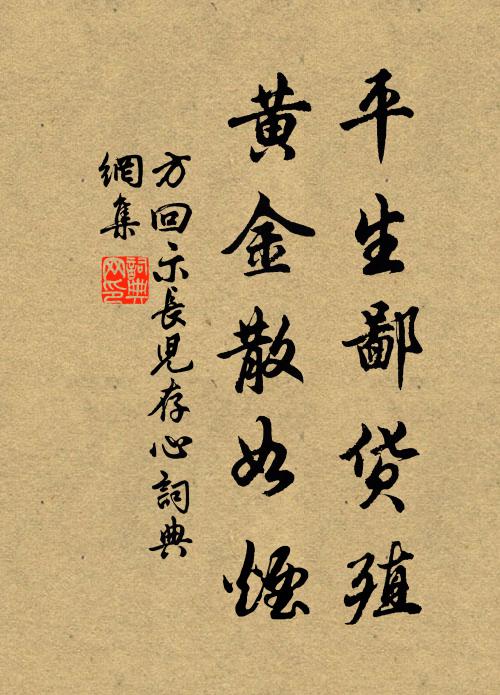 平生鄙货殖
黄金散如煙
方回示長兒存心詞典
網集
詞典
网印